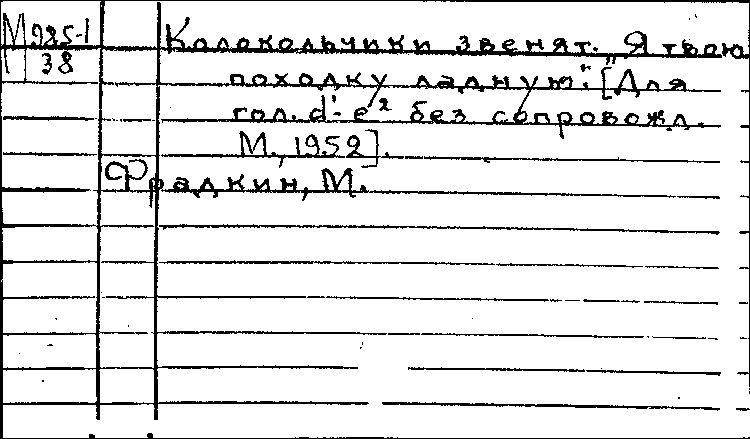 М 985-1
38
Колокольчики звенят. „Я твою
походку ладную". [Для
гол. d'- e² без сопровожд.
М., 1952].
Фрадкин, М.